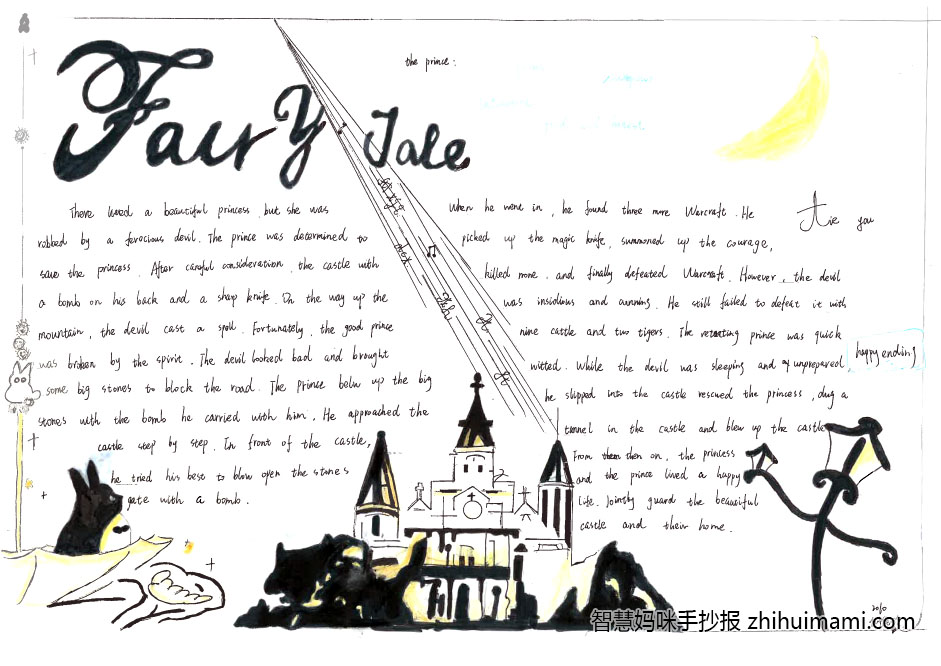 Fairy Tale
the prince:
There lived a beautiful princess, but she was
robbed by a ferocious devil. The prince was determined to
save the princess. After careful consideration, the castle with
a bomb on his back and a sharp knife. On the way up the
mountain, the devil cast a spell. Fortunately, the good prince
was broken by the spirit. The devil looked bad and brought
some big stones to block the road. The Prince belw up the big
stones with the bomb he carried with him. He approached the
castle step by step. In front of the castle,
he tried his best to blow open the stones
gate with a bomb.
When he went in, he found three more Warcraft. He
picked up the magic knife, summoned up the courage,
killed mone. and finally defeated Warcraft. However, the devil
was insidious and cunning. He still failed to defeat it with
nine cattle and two tigers. The prince was quick
witted. While the devil was sleeping and unprepared,
he slipped into the castle rescued the princess, dug a
tunnel in the castle and blew up the castle
From then on, the princess
and the prince lived a happy
life. Jointly guard the beautiful
castle and their home.
you
happy ending
智慧妈咪手抄报 zhihuimami.com